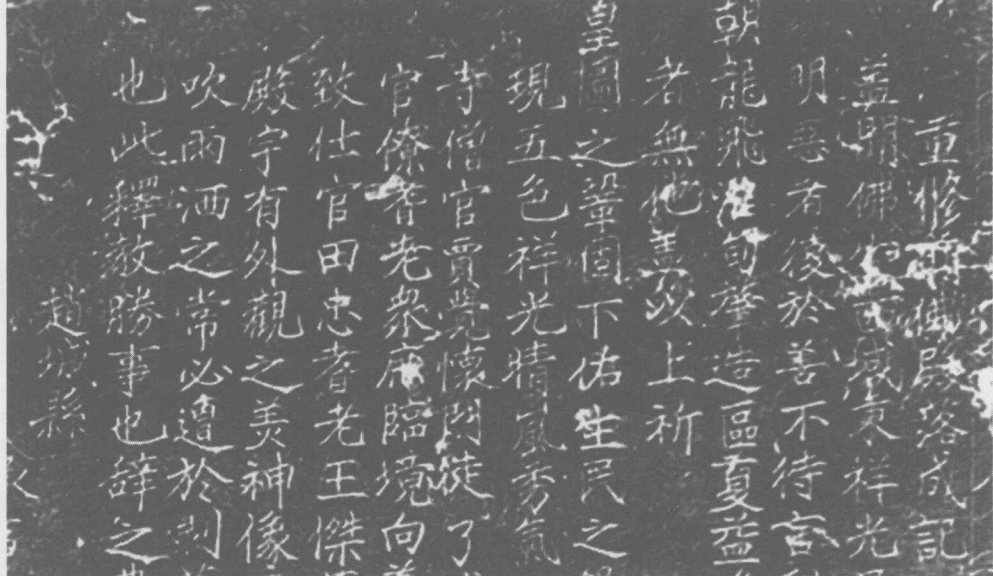 重修明應殿落成記
盖明佛西域東祥光
明惡者後於善不待言
朝龍飛淮甸肇造區夏益
者無他盖以上祈
皇圖之鞏固下佑生民之
現五色祥光晴嵐秀氣
寺僧官賈覺懷門徒了
官僚耆老眾庶臨境向
致仕官田忠耆老王傑
殿宇有外觀之美神像
吹雨洒之常必遭於剝
也此釋教勝事也辞之
趙城縣